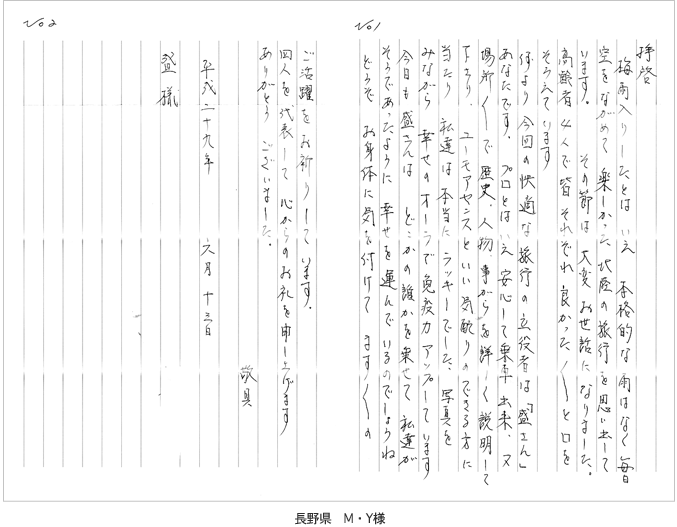 No1
拝啓
梅雨入りしたとは いえ 本格的な雨はなく 毎日
空をながめて 楽しかった 北陸の旅行を思い出して
います。 その節は 大変 お世話になりました。
高齢者 4人で皆 それぞれ 良かった/\と口を
そろえています
何より 今回の快適な旅行の立役者は「盛さん」
あなたです。 プロとはいえ 安心して乗車出来、又
場所/\で歴史、人物、事がらを詳しく説明して
下さり、 ユーモアセンスといい 気配りのできる方に
当たり 私達は本当に ラッキーでした。 写真を
みながら 幸せのオーラで免疫力アップしています
今日も盛さんは どこかの誰かを乗せて 私達が
そうであったように 幸せを運んでいるのでしょうね
どうぞ お身体に気を付けて ます/\の
No2
ご活躍をお祈りしています。
四人を代表して 心からのお礼を申し上げます
ありがとう ございました。
敬具
平成二十九年 六月十三日
盛様
長野県 M・Y様